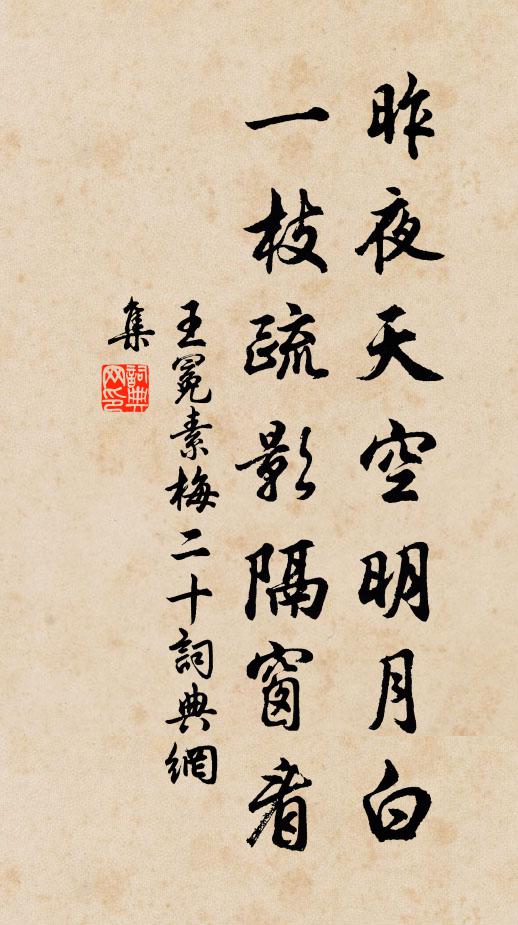 昨夜天空明月白
一枝疏影隔窗看
王冕素梅二十詞典網
集
詞典
网印